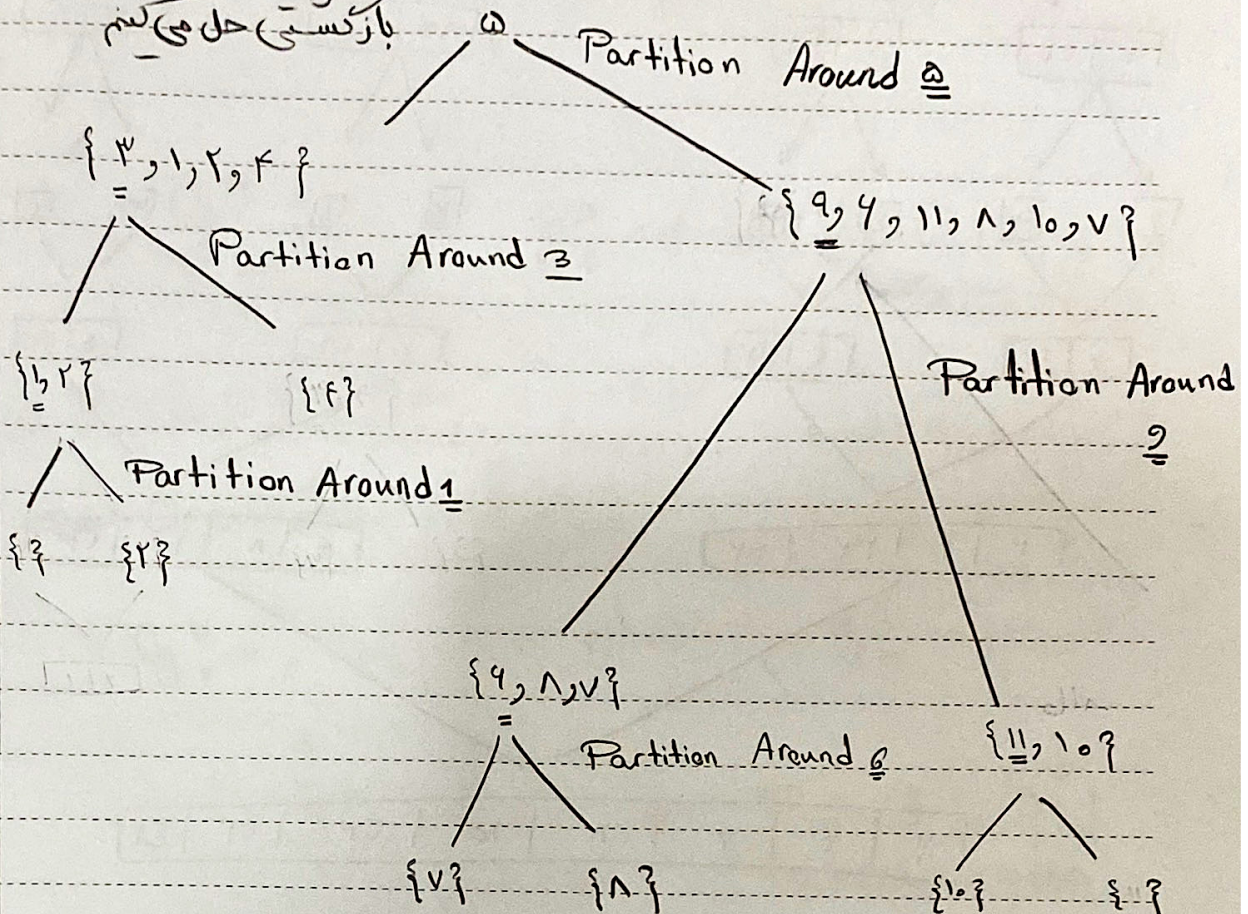 بازگشتی حل می‌کنیم
۵ Partition Around ۵
{ ۳, ۱, ۲, ۴ }
{ ۹, ۶, ۱۱, ۸, ۱۰, ۷ }
Partition Around 3
{ ۱, ۲ } { ۴ }
Partition Around
9
Partition Around 1
{ } { ۲ }
{ ۶, ۸, ۷ }
Partition Around 6
{ ۱۱, ۱۰ }
{ ۷ } { ۸ } { ۱۰ } { }